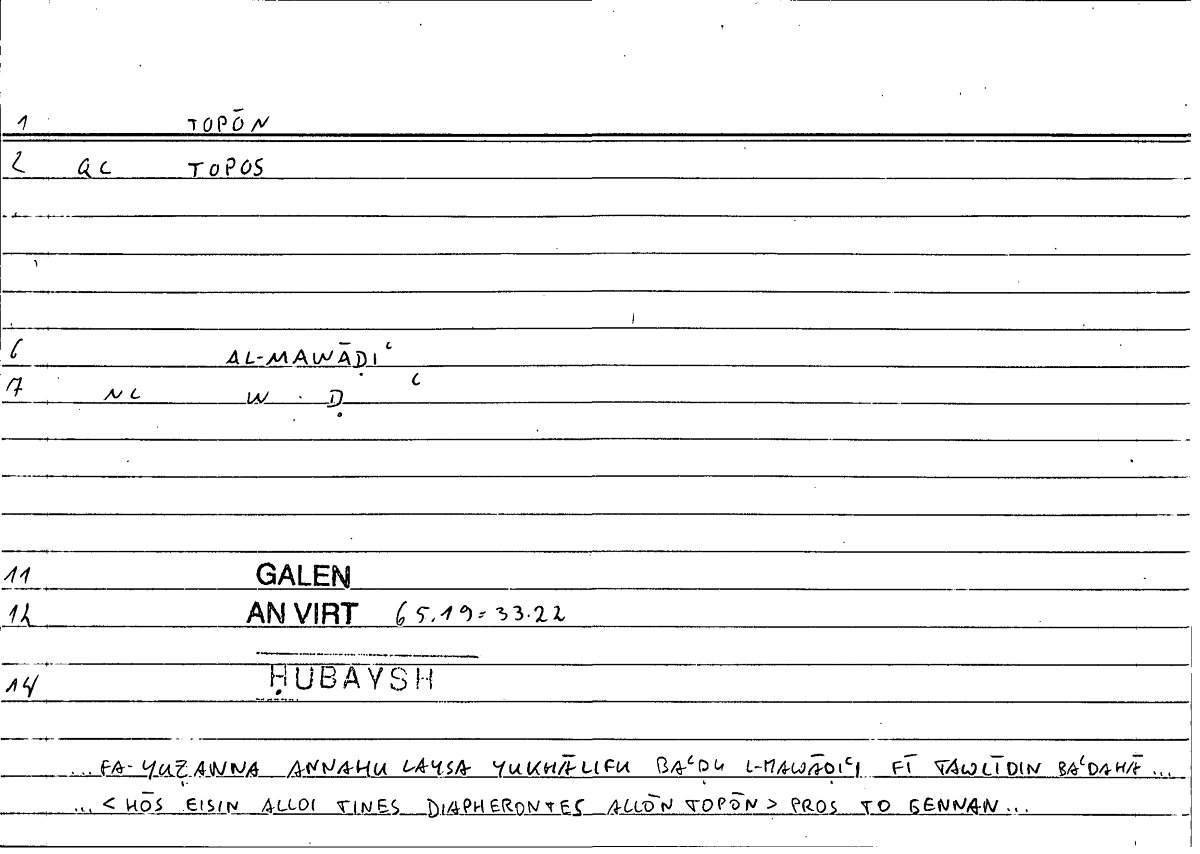 1 TOPŌN
2 QC TOPOS
6 AL-MAWĀḌIʿ
7 NC W . Ḍ ʿ
11 GALEN
12 AN VIRT 65.19=33.22
14 ḤUBAYSH
... FA-YUẒANNA ANNAHU LAYSA YUKHĀLIFU BAʿḌU L-MAWĀḌIʿI FĪ TAWLĪDIN BAʿḌAHĀ ...
... < HŌS EISIN ALLOI TINES DIAPHERONTES ALLŌN TOPŌN > PROS TO GENNAN ...